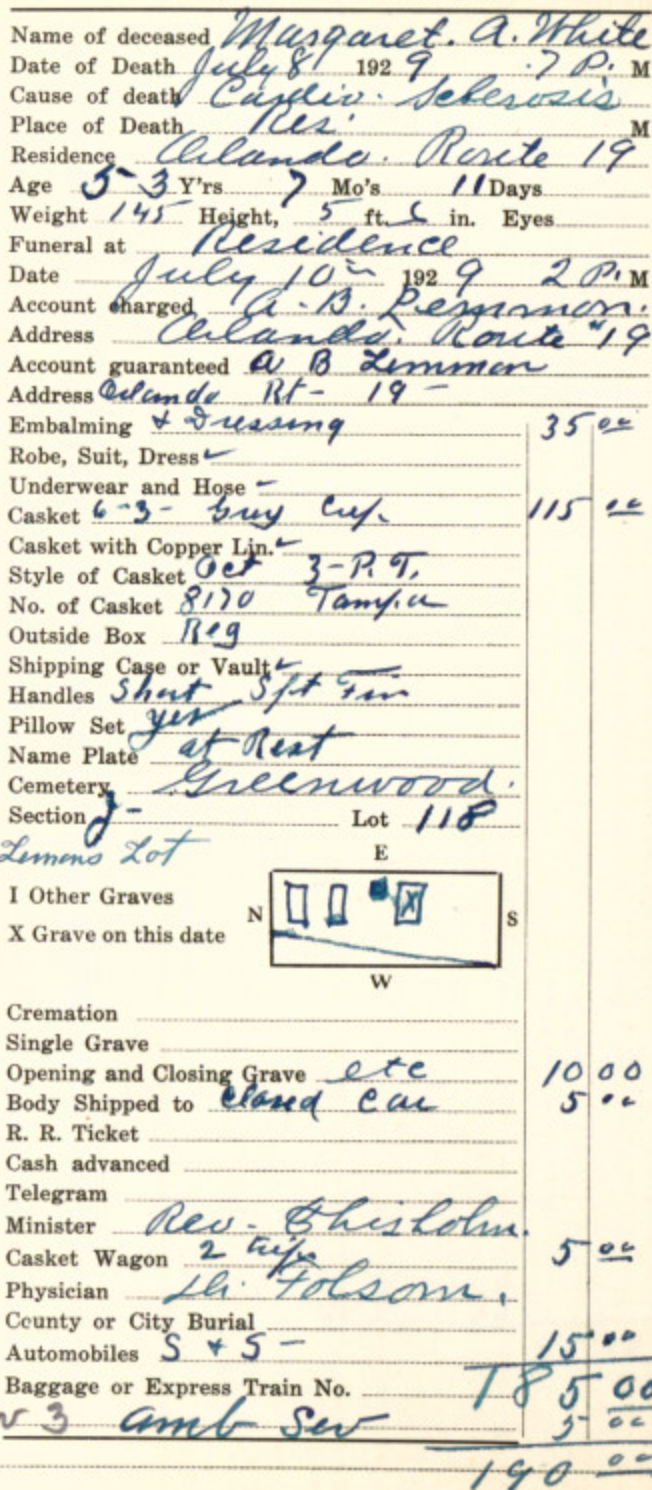 Name of deceased Margaret. A. White
Date of Death July 8 1929 7 P. M
Cause of death Cardio. Sclerosis
Place of Death Res. M
Residence Orlando. Route 19
Age 53 Y'rs 7 Mo's 11 Days
Weight 145 Height, 5 ft. 6 in. Eyes
Funeral at Residence
Date July 10th 1929 2 P. M
Account charged A. B. Lemmon.
Address Orlando. Route "19
Account guaranteed A B Limmon
Address Orlando Rt - 19 -
Embalming & Dressing 35 00
Robe, Suit, Dress
Underwear and Hose -
Casket 6-3- Grey Crep. 115 00
Casket with Copper Lin.
Style of Casket Oct 3-P. T.
No. of Casket 8170 Tampa
Outside Box Reg
Shipping Case or Vault
Handles Short
Pillow Set yes
Name Plate at Rest
Cemetery Greenwood.
Section J - Lot 118
Lemons Lot
E
I Other Graves
N X S
X Grave on this date
W
Cremation
Single Grave
Opening and Closing Grave etc 10 00
Body Shipped to Closed Car 5 00
R. R. Ticket
Cash advanced
Telegram
Minister Rev - Chisholm.
Casket Wagon 2 trips 5 00
Physician Dr. Folsom.
County or City Burial
Automobiles S & S - 15 00
Baggage or Express Train No. 185 00
3 amb Ser 5 00
190 00